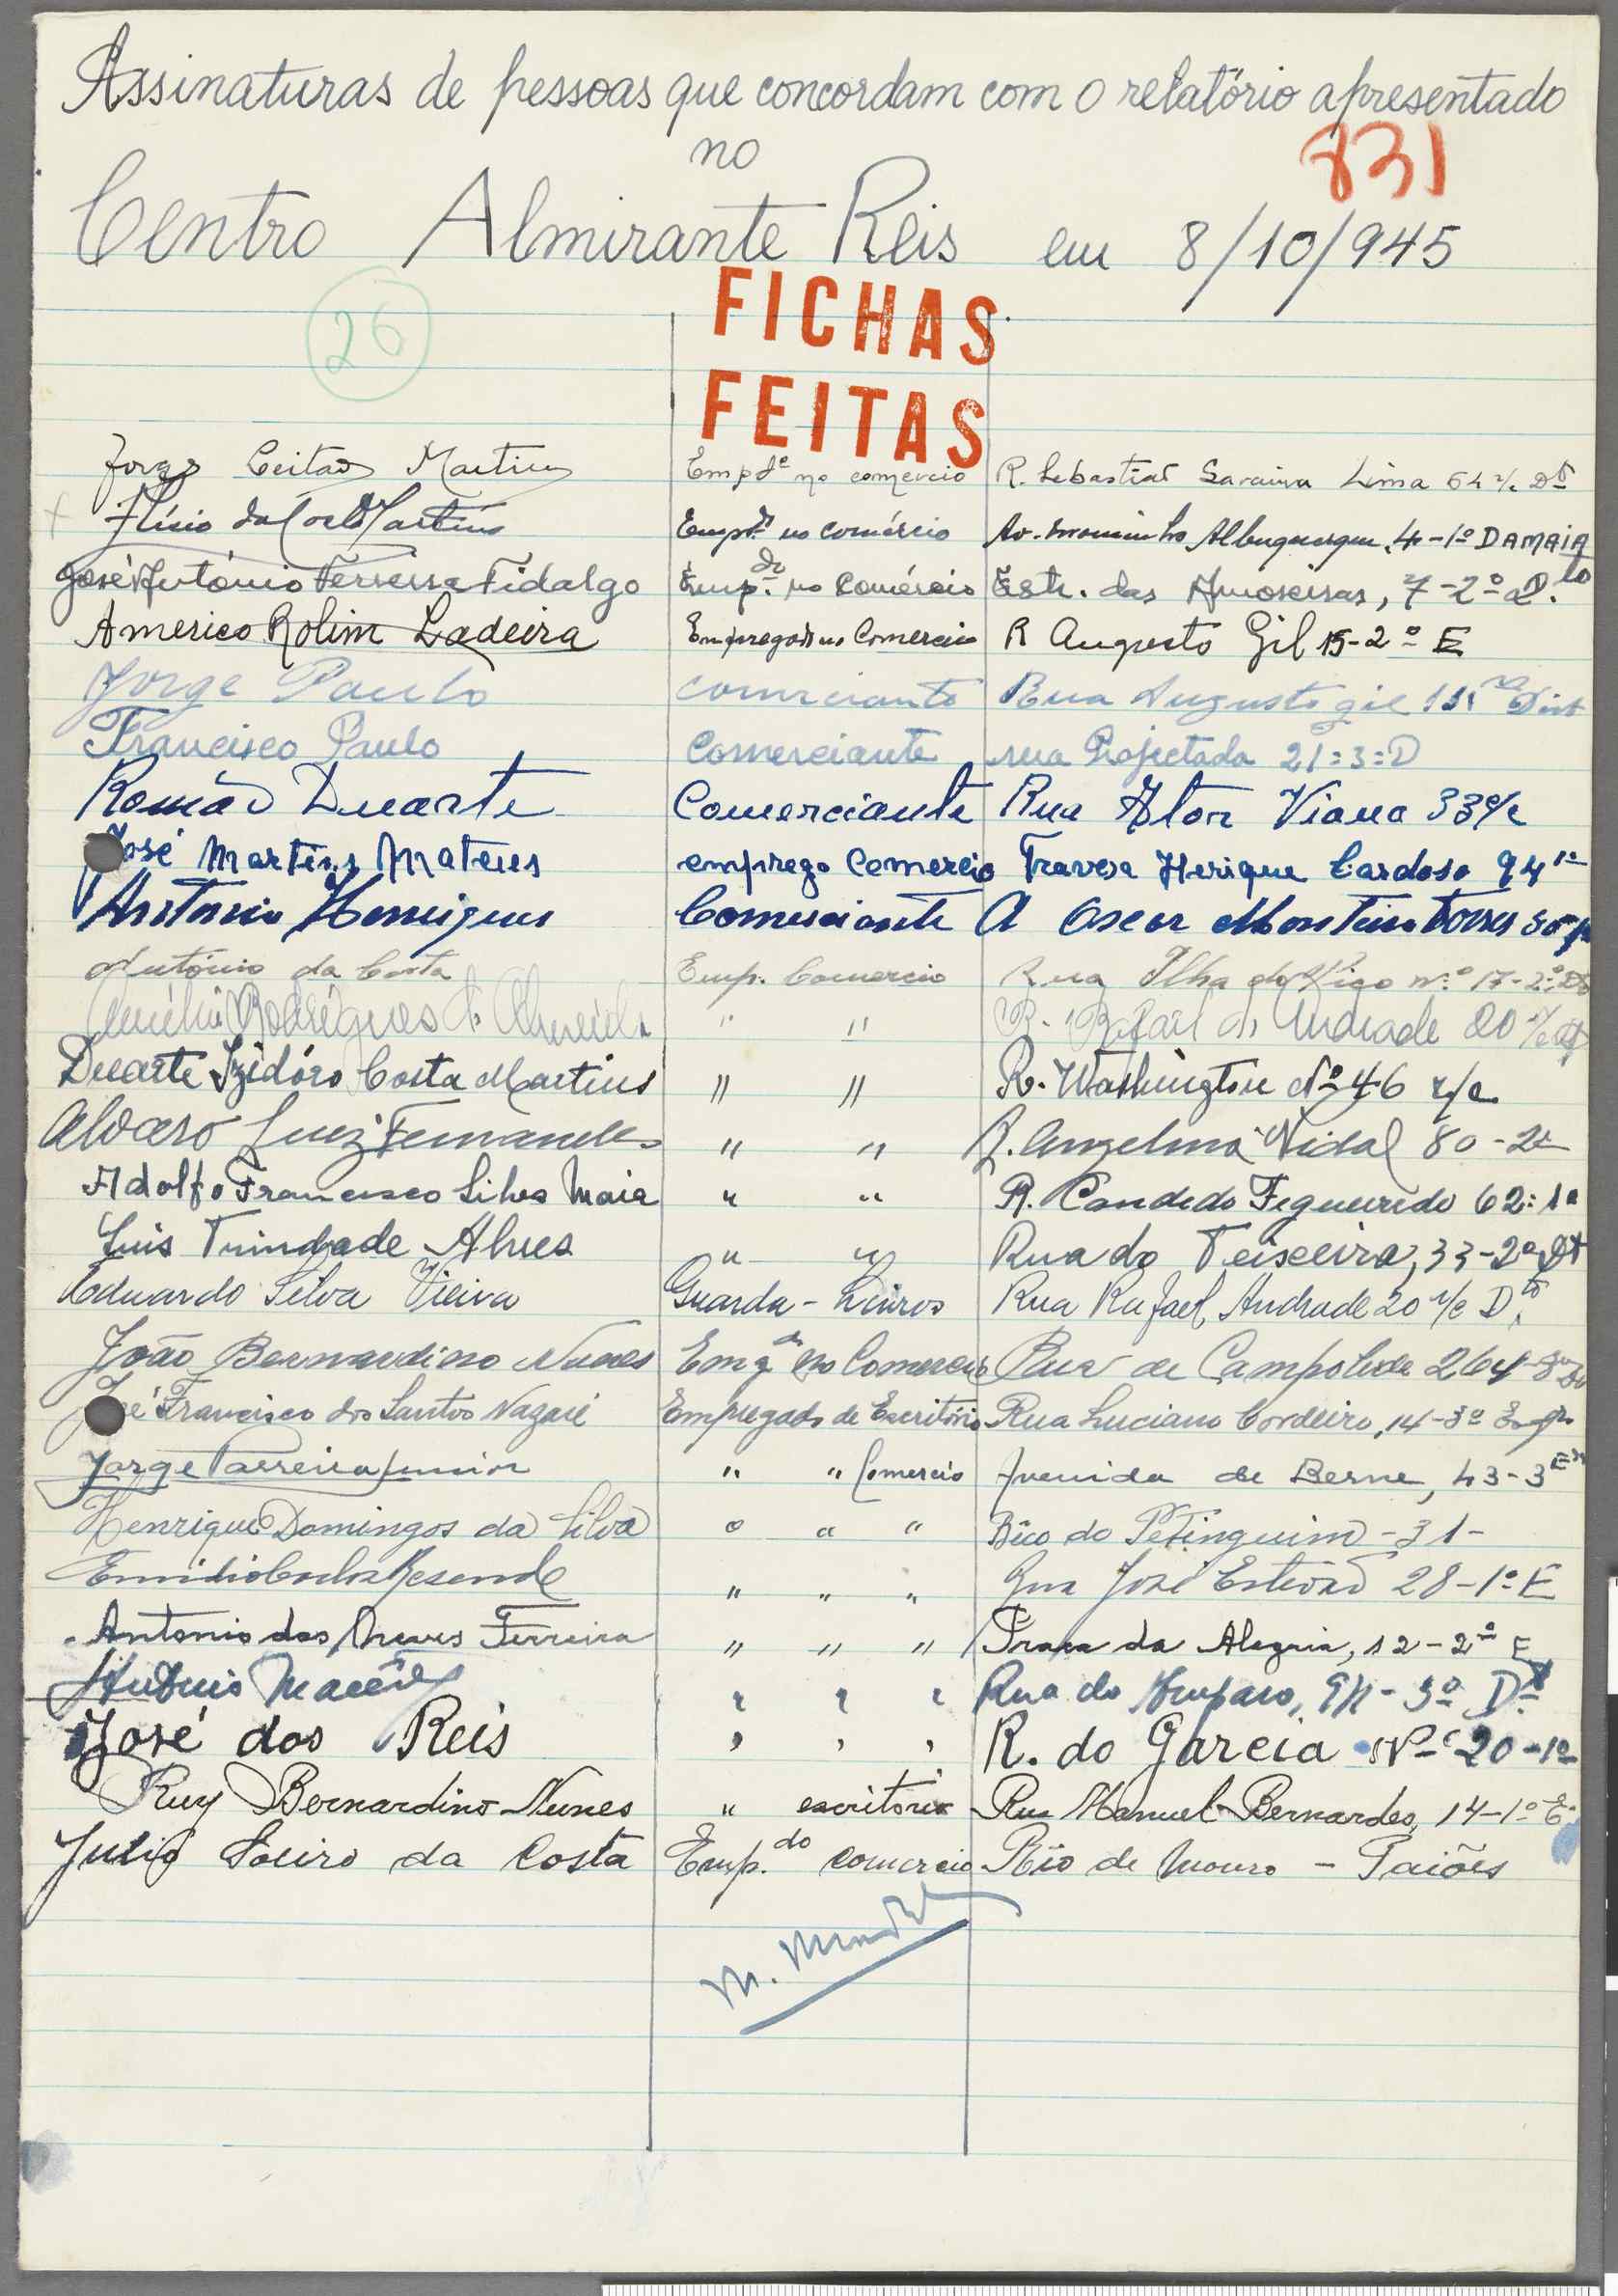 Assinaturas de pessoas que concordam com o relatório apresentado
no
831
Centro Almirante Reis em 8/10/945
26
FICHAS
FEITAS
Jorge Leitão Martins Empdº no comercio R. Sebastião Saraiva Lima 64 r/c Dtº
da Costa Martins Empdº no comércio Av. Mouzinho Albuquerque, 4-1º DAMAIA
José António Ferreira Fidalgo Empdº no Comércio Estr. das Amoreiras, 7-2º Dto
Americo Rolim Ladeira Empregado no Comercio R Augusto Gil 15-2º E
Jorge Paulo comerciante Rua Augusto gil
Francisco Paulo Comerciante rua Projectada 21=3=D
Romão Duarte Comerciante Rua Viana 33 r/c
José Martins Mateus emprego Comercio Travesa Herique Cardoso 94 1º
Antonio Henriques Comerciante A Oscar Monteiro Torres
António da Costa Emp. Comercio Rua Ilha do Pico nº 17-2º Dº
Rodrigues de Almeida " " R. Rafael de Andrade 20 r/c
Duarte Izidóro Costa Martins " " R. Washington Nº 46 r/c
Alvaro Luiz Fernandes " " R. Anzelmo Vidal 80-2º
Adolfo Francisco Silva Maia " " R. Candedo Fegueiredo 62=1º
Luis Trindade Alves " " Rua do Teixeira, 33-2º Dt
Eduardo Silva Vieira Guarda-Livros Rua Rafael Andrade 20 r/c Dtº
João Bernardino Nunes Empdº no Comercio Rua de Campolide 264-3º
José Francisco dos Santos Nazaré Empregado de Escritório Rua Luciano Cordeiro, 14-3º Esq
Jorge Parreira Junior " " Comercio Avenida de Berne, 43-3
Henrique Domingos da Silva " " " Bêco do Petinguim-31-
Emidio Carlos Resende " " " Rua José Estêvão 28-1º E
Antonio das Neves Ferreira " " " Praça da Alegria, 12-2º E
António Macêdo " " " Rua do Amparo, 3º Dtº
José dos Reis " " " R. do Garcia Nº 20-1º
Ruy Bernardino Nunes " escritorio Rua Manuel Bernardes, 14-1º E.
Julio Loeiro da Costa Emp.do comercio Rio de Mouro - Paiões
M.